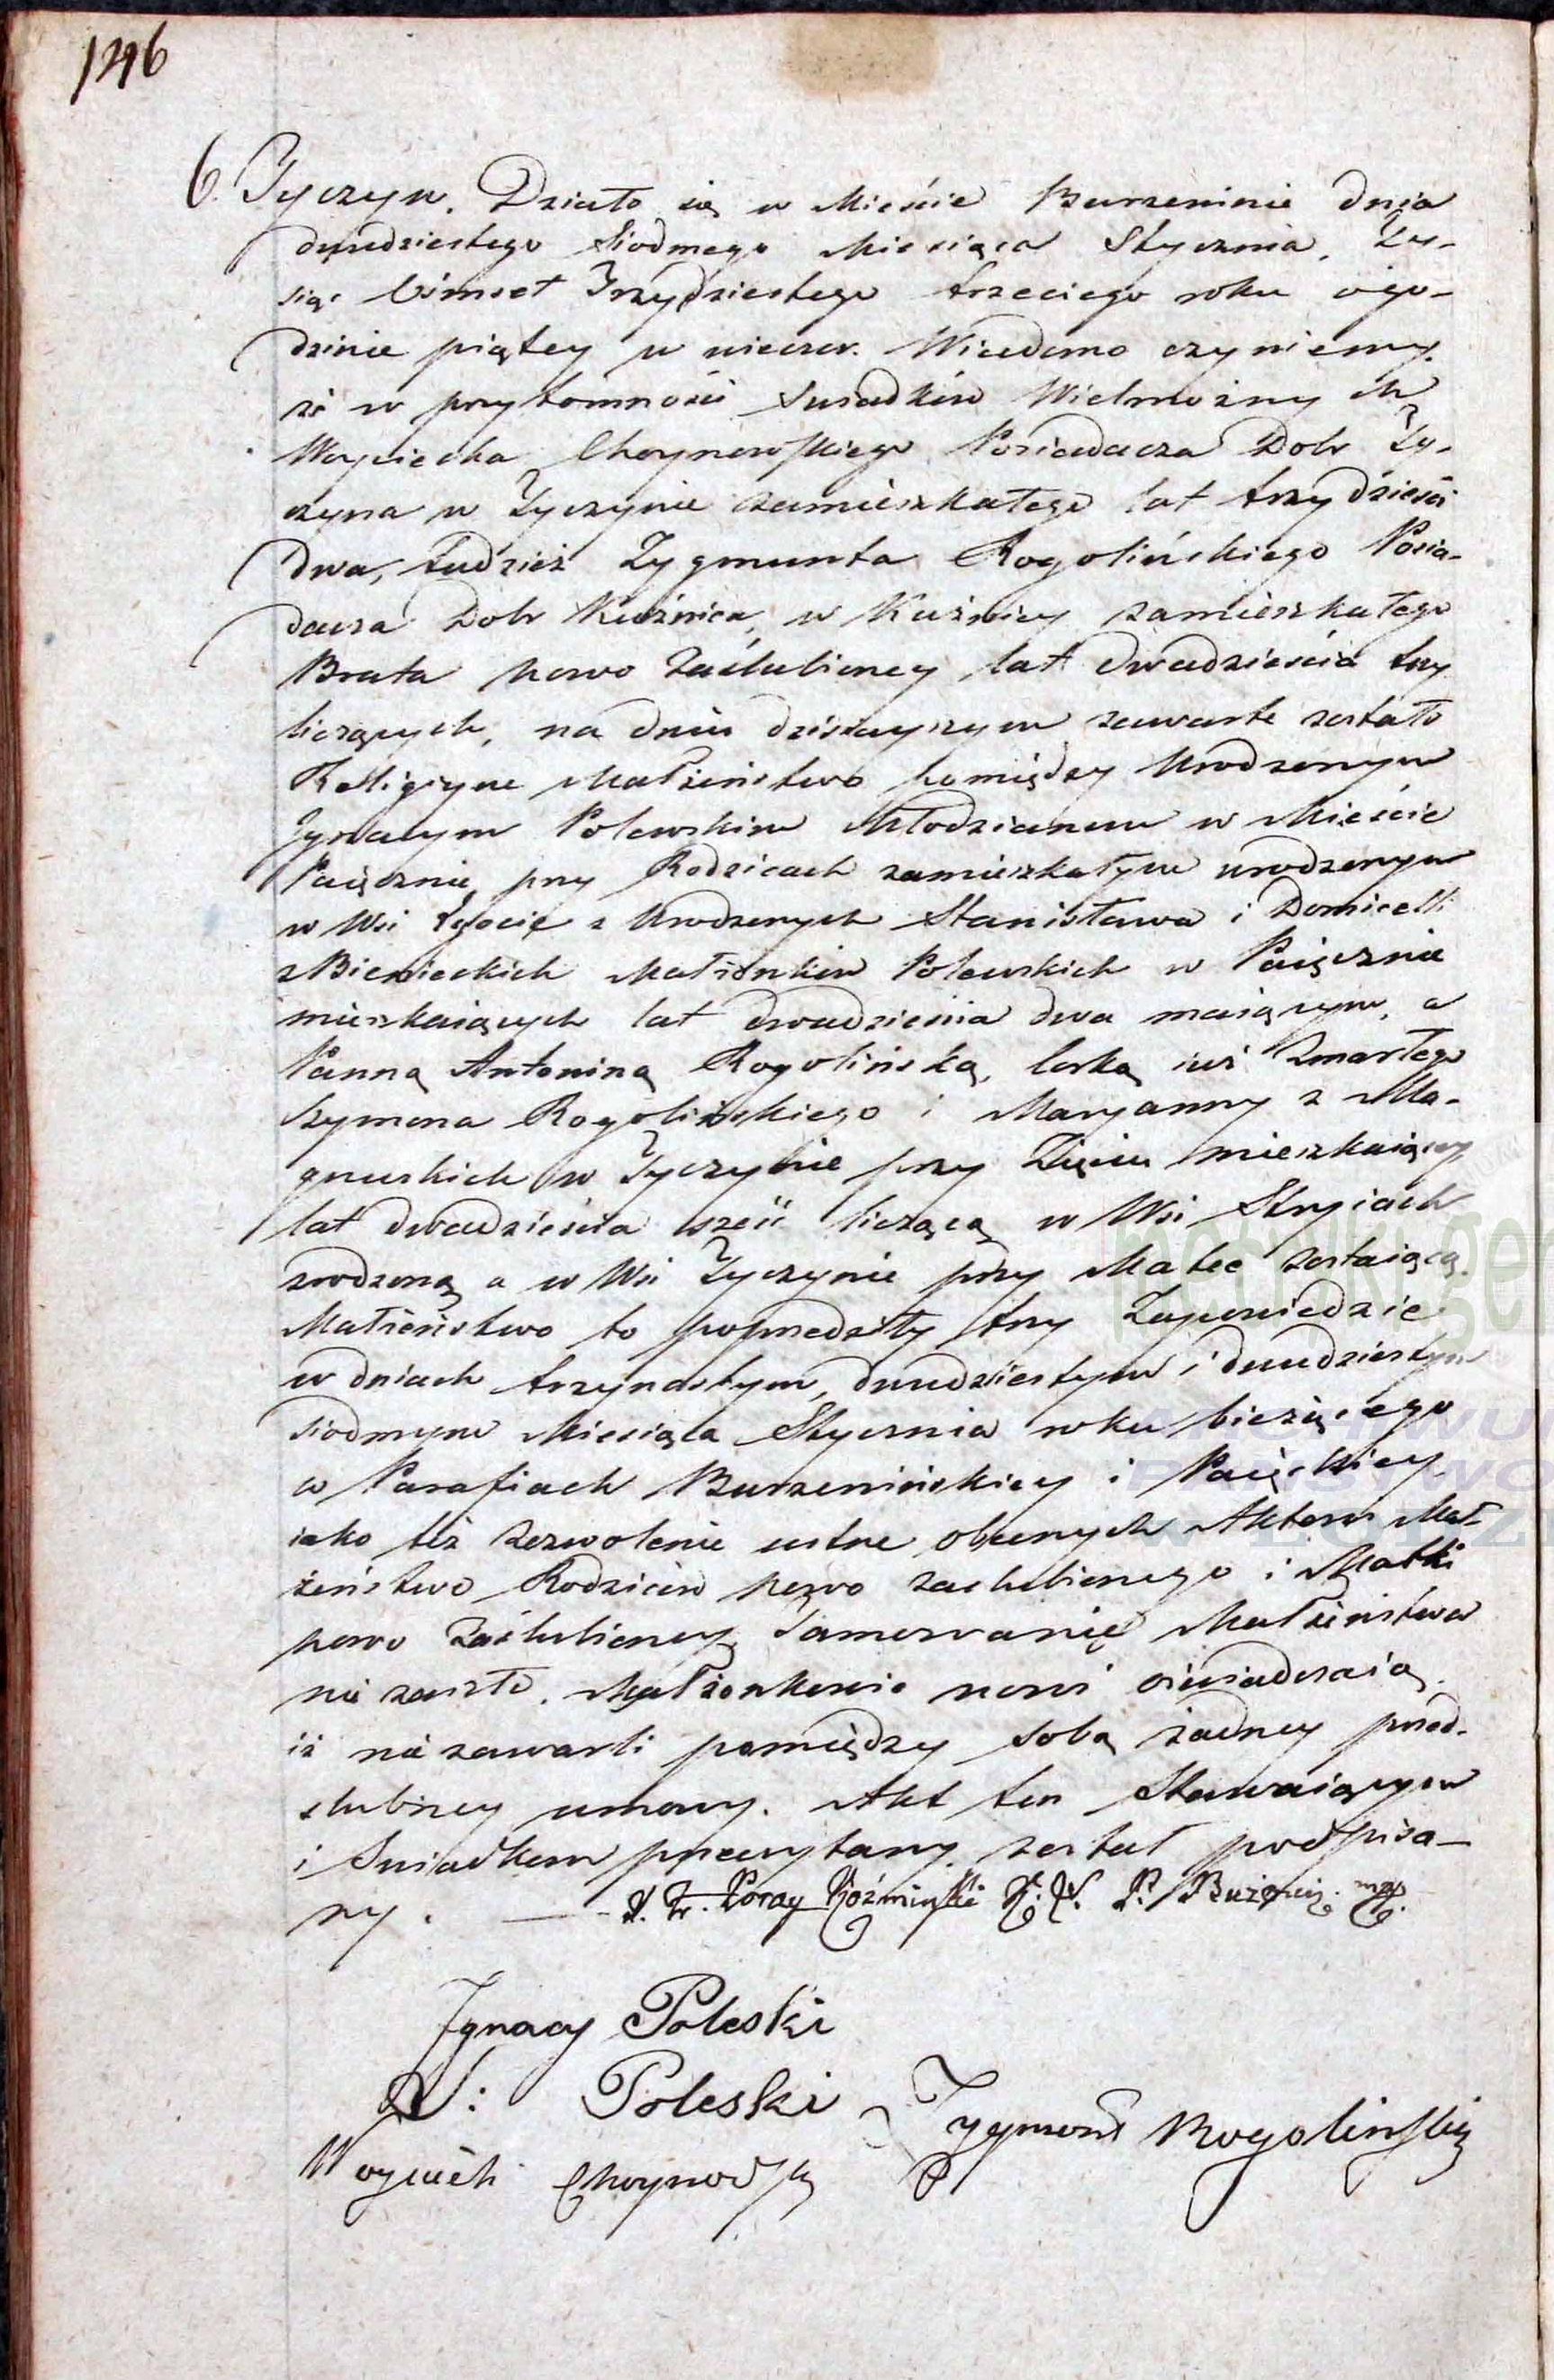 146
6. Tyczyn. Działo się w Mieście Burzeninie dnia
dwudziestego Siodmego Miesiąca Stycznia, Ty-
siąc Ośmset Trzydziestego trzeciego roku o go-
dzinie piątey w wieczor. Wiadomo czyniemy,
że w przytomności Swiadków Wielmożnych
Woyciecha Choynowskiego Posiadacza Dobr Ty-
czyna w Tyczynie zamieszkałego lat trzydzieści
dwa, tudzież Zygmunta Rogolińskiego Posia-
dacza Dobr Kuźnica, w Kuźnicy zamieszkałego
Brata nowo Zaślubioney lat dwadzieścia trzy
liczących, na dniu dzisieyszym zawarte zostało
Religiyne Małżeństwo pomiędzy Urodzonym
Ignacym Poleskim Młodzianem w Mieście
Paięcznie przy Rodzicach zamieszkałym urodzonym
w Wsi z Urodzonych Stanisława i Domicelli
z Bienieckich Małżonków Poleskich w Paięcznie
mieszkaiących lat dwadzieścia dwa maiącym, a
Panną Antoniną Rogolińską, Corką iuż Zmarłego
Szymona Rogolińskiego i Maryanny z Ma-
gnuskich w Tyczynie przy Zięciu mieszkaiącey,
lat dwadzieścia sześć liczącą w Wsi Stryiach
zrodzoną a w Wsi Tyczynie przy Matce zostaiącą.
Małżeństwo to poprzedziły trzy Zapowiedzie
w dniach trzynastym, dwudziestym i dwudziestym
siodmym Miesiąca Stycznia roku bieżącego
w Parafiach Burzenińskiey i Paięckiey,
iako też zezwolenie ustne obecnych Aktowi Mał-
żeństwa Rodziców nowo zaślubionego i Matki
nowo Zaślubioney. Tamowanie Małżeństwa
nie zaszło. Małżonkowie nowi oświadczaią,
iż nie zawarli pomiędzy sobą żadney przed-
ślubney umowy. Akt ten Stawaiącym
i Swiadkom przeczytany, został podpisa-
ny. — X. Fr. Poray Koźmiński K. P. Burzeniń. mp.
Ignacy Poleski
S: Poleski
Zygmont Rogolinski
Woyciech Choynowski